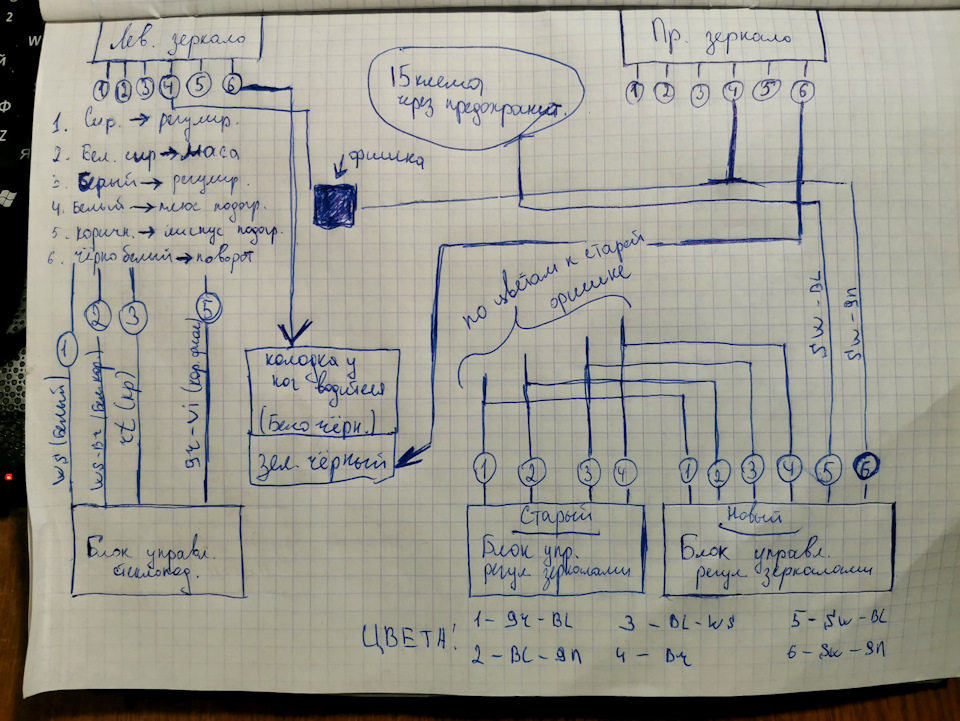 Лев. зеркало
1 2 3 4 5 6
Пр. зеркало
1 2 3 4 5 6
15 клема
через предохранит.
фишка
1. Сир. → регулир.
2. Бел. сир → маса
3. Серый → регулир.
4. Белый → плюс подогр.
5. коричн. → минус подогр.
6. чёрно белый → поворот
1 2 3
ws (Белый)
ws-Br
rt (кр)
gr-vi
Блок управл.
стеклопод.
колодка у
ног водителя
(Бело чёрн.)
зел. чёрный
по цветам к старой
фишке
SW-BL
SW-gn
1 2 3 4
Старый
Блок упр.
регул зеркалами
1 2 3 4 5 6
Новый
Блок управл.
регул зеркалами
ЦВЕТА!
1 - gr - BL
2 - BL - gn
3 - BL-WS
4 - Br
5 - SW - BL
6 - SW - gn
2
W
Ф
Z
Я